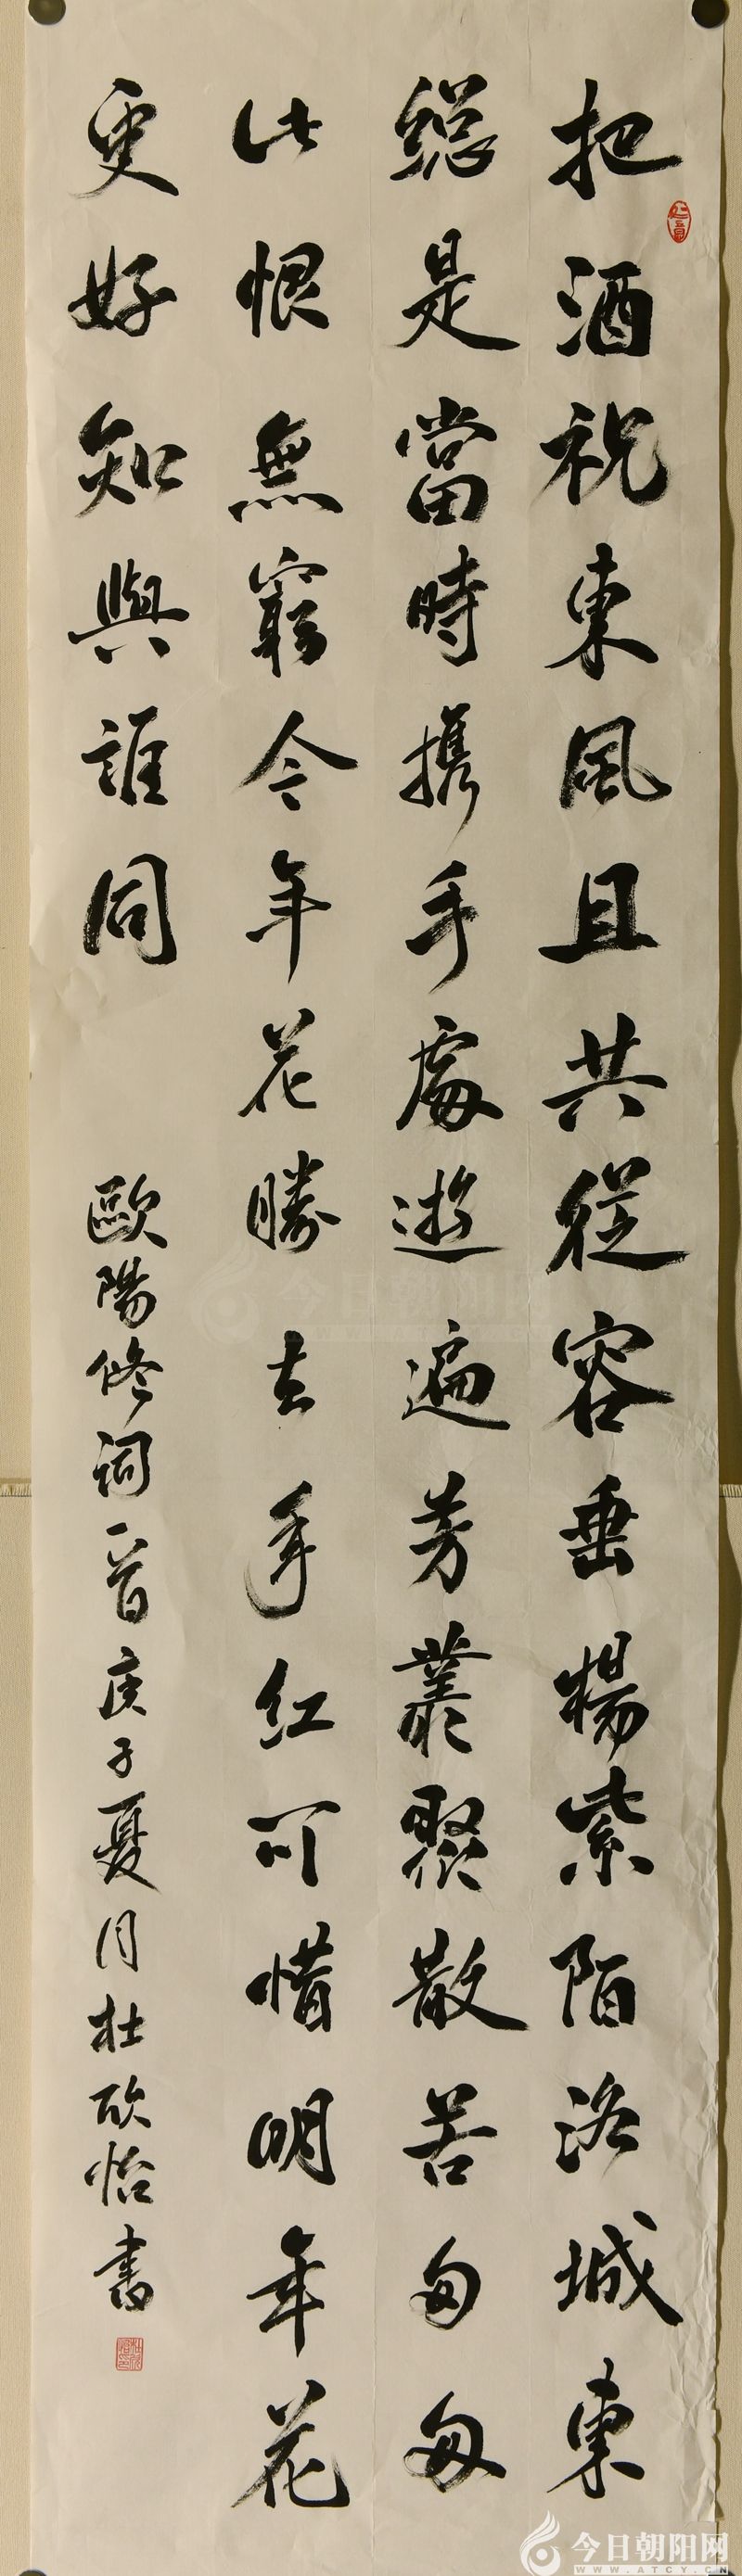 把酒祝東風且共從容垂楊紫陌洛城東
總是當時携手處遊遍芳叢聚散苦匆匆
此恨無窮今年花勝去年紅可惜明年花
更好知與誰同
歐陽修詞一首庚子夏月杜欣怡書
今日朝阳网
WWW.ATCY.CN